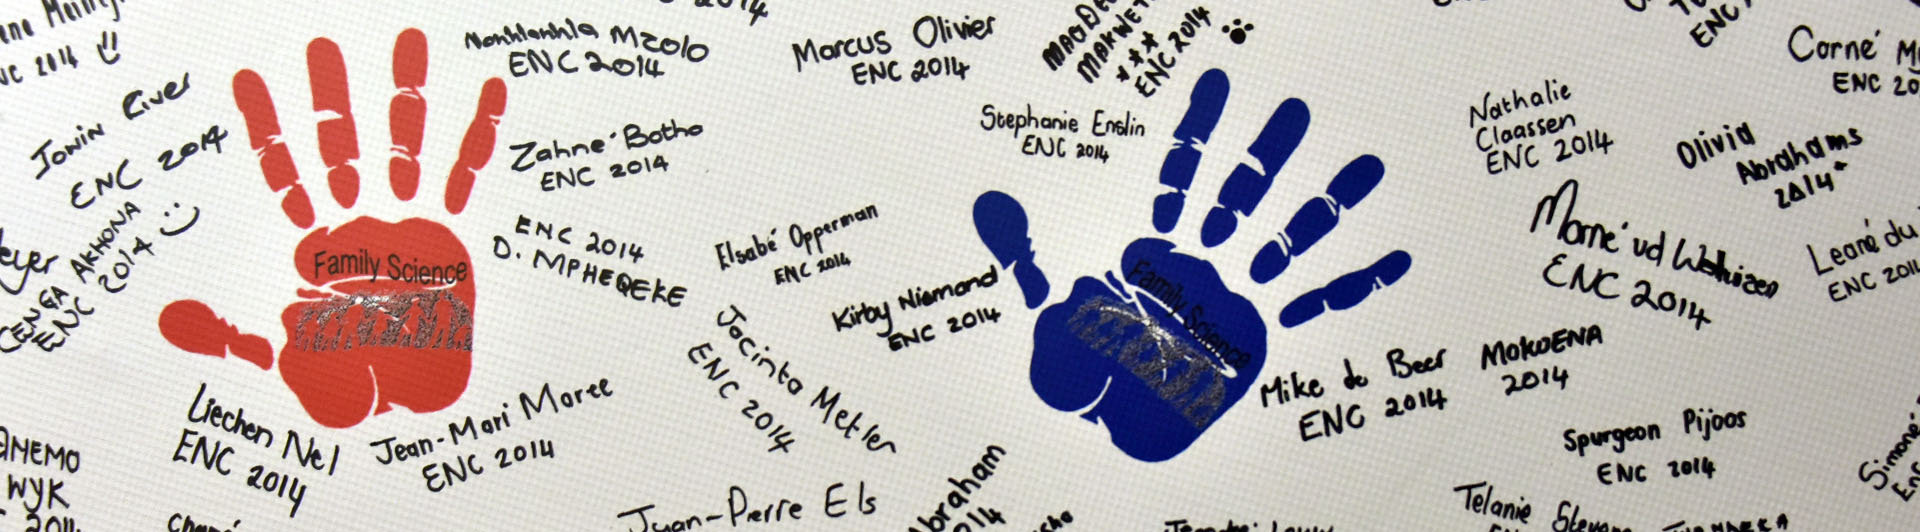 ENC 2014
Jowin River
ENC 2014
AKHONA
ENC 2014
WYK
2014
Family Science
Liechen Nel
ENC 2014
Jean-Mari Maree
ENC 2014
Mzolo
ENC 2014
Zahné Botha
ENC 2014
ENC 2014
D. MPHEQEKE
Marcus Olivier
ENC 2014
ENC 2014
Stephanie Enslin
ENC 2014
Elsabé Opperman
ENC 2014
Kirby Niemand
ENC 2014
Jacinta Metler
ENC 2014
Els
Abraham
Family Science
Mike de Beer
ENC 2014
MOKOENA
2014
Nathalie
Claassen
ENC 2014
Olivia
Abrahams
2014
Corné
ENC
Morné vd Westhuizen
ENC 2014
Leané du
ENC 2014
Spurgeon Pijoos
ENC 2014
Telanie